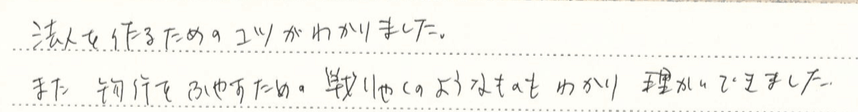 法人を作るためのコツがわかりました。
また 銀行を ふやすための 戦りゃくのようなものも わかり 理かいできました。